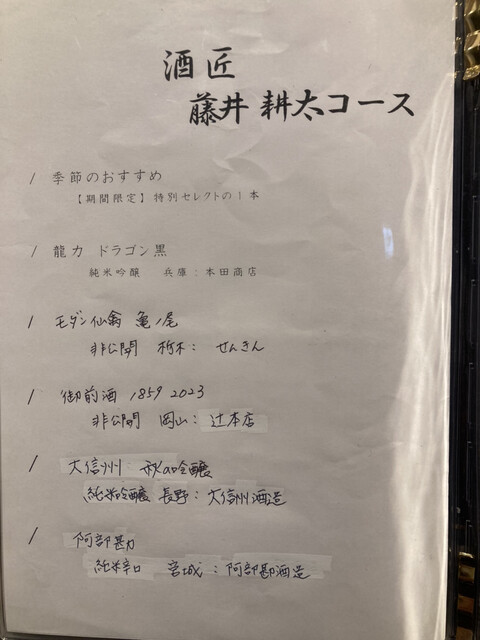 酒匠
藤井 耕太コース
/ 季節のおすすめ
【期間限定】特別セレクトの1本
/ 龍力 ドラゴン黒
純米吟醸 兵庫:本田商店
/ モダン仙禽 亀ノ尾
非公開 栃木: せんきん
/ 御前酒 1859 2023
非公開 岡山: 辻本店
/ 大信州 秋の吟醸
純米吟醸 長野: 大信州酒造
/ 阿部勘
純米辛口 宮城: 阿部勘酒造